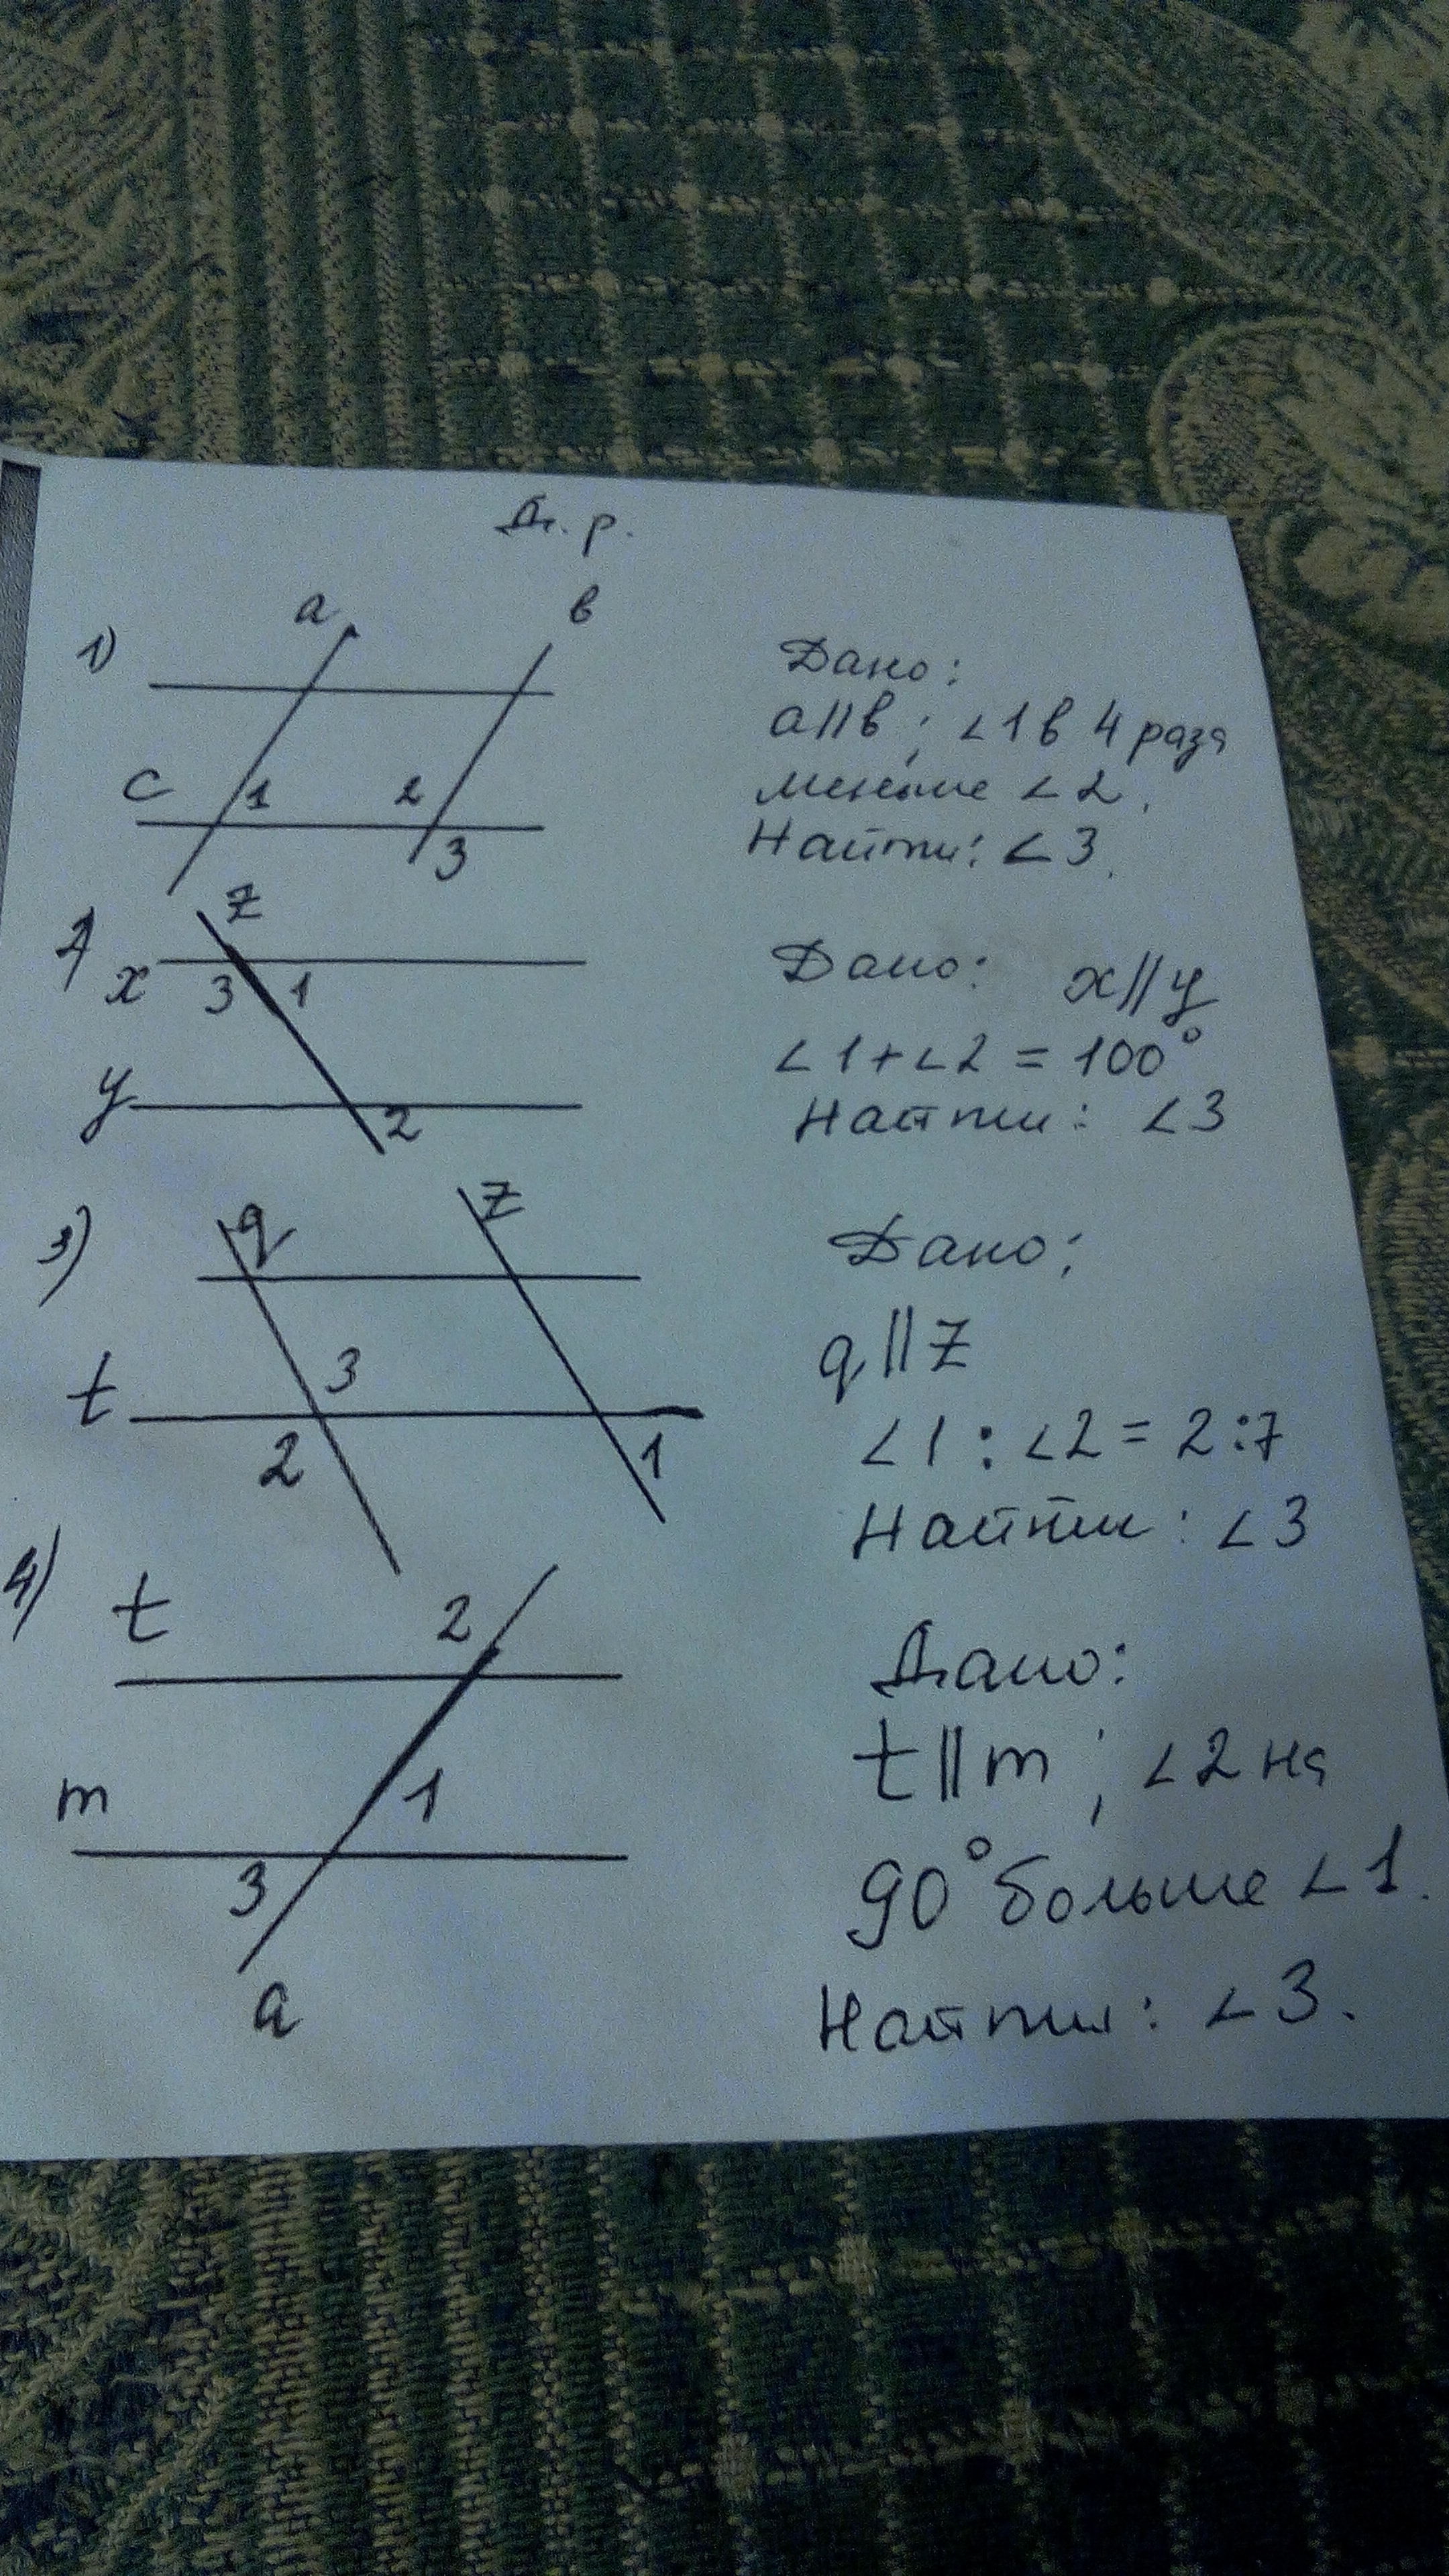 Д. р.
1)
a
в
c
1
2
3
Дано:
a||в; ∠1 в 4 раза
меньше ∠2.
Найти: ∠3.
2)
z
x
3
1
y
2
Дано: x||y
∠1+∠2 = 100°
Найти: ∠3
3)
q
z
3
t
2
1
Дано:
q||z
∠1 : ∠2 = 2:7
Найти: ∠3
4)
t
2
m
1
3
a
Дано:
t||m; ∠2 на
90° больше ∠1.
Найти: ∠3.